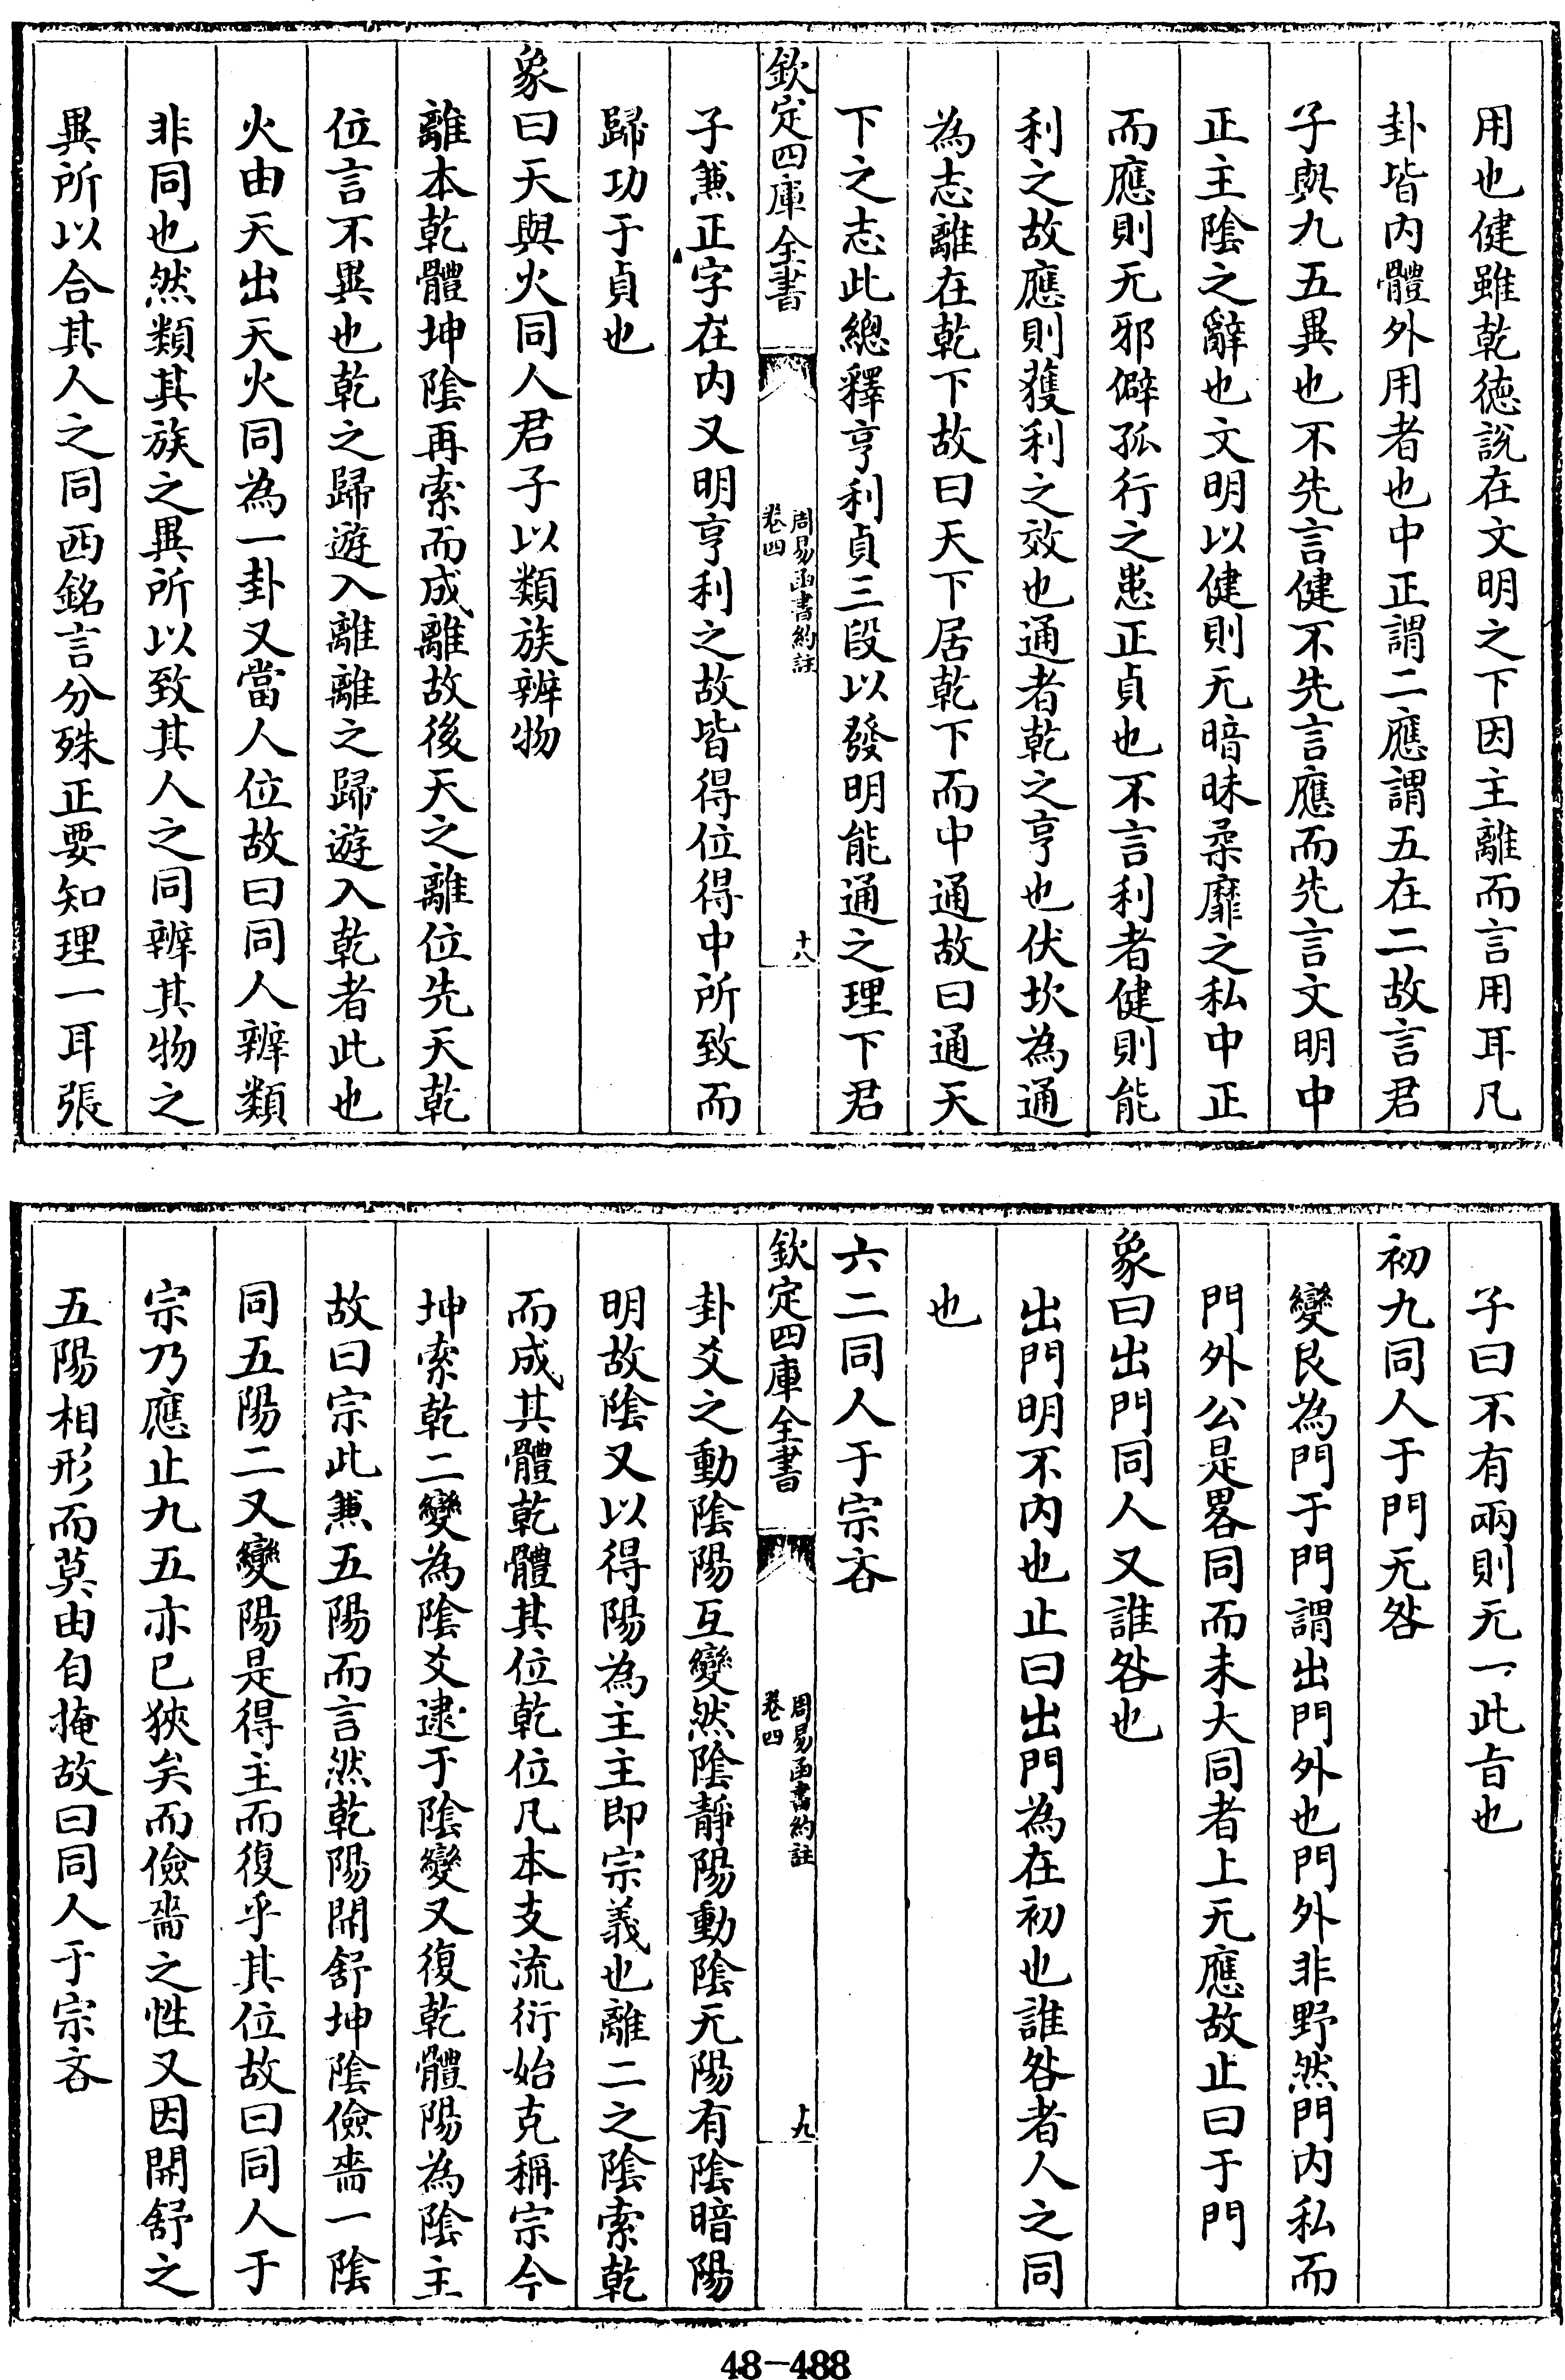 用也健雖乾徳説在文明之下因主離而言用耳凡
卦皆内體外用者也中正謂二應謂五在二故言君
子與九五異也不先言健不先言應而先言文明中
正主陰之辭也文明以健則无暗昧柔靡之私中正
而應則无邪僻孤行之患正貞也不言利者健則能
利之故應則獲利之效也通者乾之亨也伏坎為通
為志離在乾下故曰天下居乾下而中通故曰通天
下之志此總釋亨利貞三段以發明能通之理下君
欽定四庫全書
周易函書約註
卷四
十八
子兼正字在内又明亨利之故皆得位得中所致而
歸功于貞也
象曰天與火同人君子以類族辨物
離本乾體坤陰再索而成離故後天之離位先天乾
位言不異也乾之歸遊入離離之歸遊入乾者此也
火由天出天火同為一卦又當人位故曰同人辨類
非同也然類其族之異所以致其人之同辨其物之
異所以合其人之同西銘言分殊正要知理一耳張
子曰不有兩則无一此㫖也
初九同人于門无咎
變艮為門于門謂出門外也門外非野然門内私而
門外公是畧同而未大同者上无應故止曰于門
象曰出門同人又誰咎也
出門明不内也止曰出門為在初也誰咎者人之同
也
六二同人于宗吝
欽定四庫全書
周易函書約註
卷四
十九
卦爻之動陰陽互變然陰靜陽動陰无陽有陰暗陽
明故陰又以得陽為主主即宗義也離二之陰索乾
而成其體乾體其位乾位凡本支流衍始克稱宗今
坤索乾二變為陰爻逮于陰變又復乾體陽為陰主
故曰宗此兼五陽而言然乾陽開舒坤陰儉嗇一陰
同五陽二又變陽是得主而復乎其位故曰同人于
宗乃應止九五亦已狹矣而儉嗇之性又因開舒之
五陽相形而莫由自掩故曰同人于宗吝
48-488